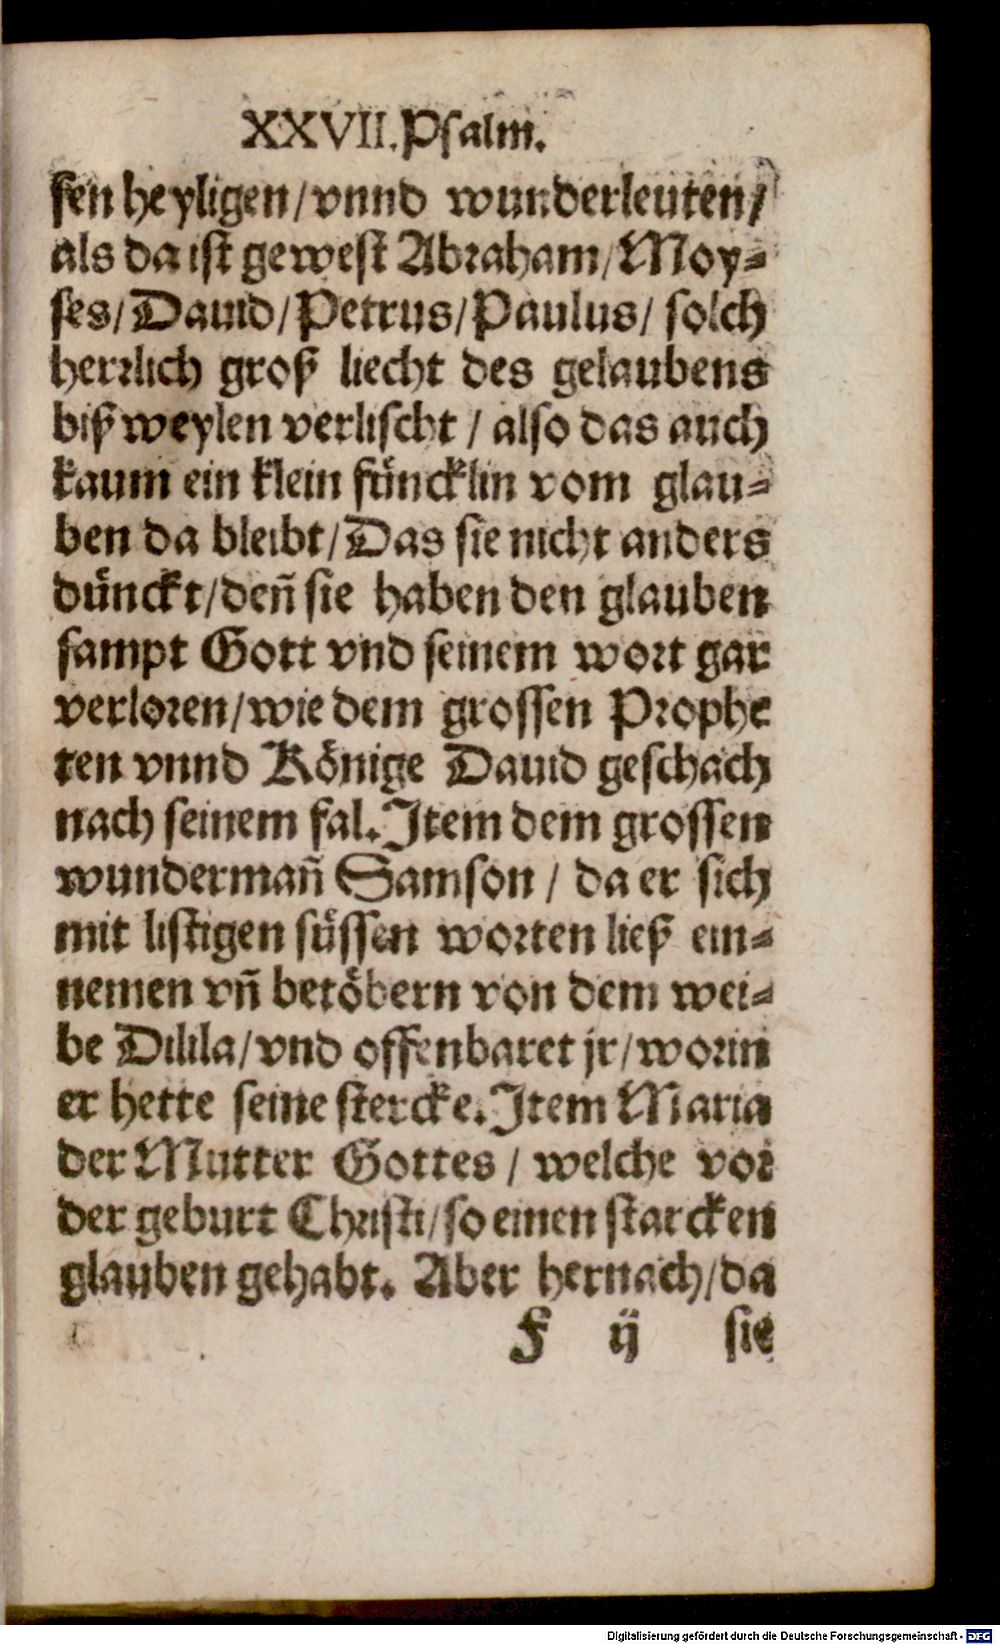 XXVII. Psalm.
sen heyligen / vnnd wunderleuten /
als da ist gewest Abraham / Moy⸗
ses / Dauid / Petrus / Paulus / solch
herrlich groß liecht des gelaubens
bißweylen verlischt / also das auch
kaum ein klein fuͤncklin vom glau⸗
ben da bleibt / Das sie nicht anders
duͤnckt / deñ sie haben den glauben
sampt Gott vnd seinem wort gar
verloren / wie dem grossen Prophe
ten vnnd Koͤnige Dauid geschach
nach seinem fal. Item dem grossen
wundermañ Samson / da er sich
mit listigen suͤssen worten ließ ein⸗
nemen vñ betoͤbern von dem wei⸗
be Dilila / vnd offenbaret jr / worin
er hette seine stercke. Item Maria
der Mutter Gottes / welche vor
der geburt Christi / so einen starcken
glauben gehabt. Aber hernach / da
F ij sie
Digitalisierung gefördert durch die Deutsche Forschungsgemeinschaft - DFG